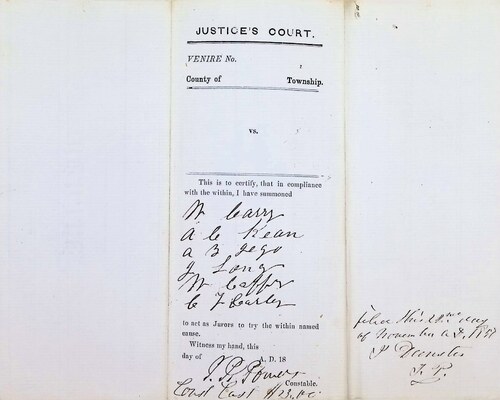 JUSTICE'S COURT.
VENIRE No.
County of Township.
vs.
This is to certify, that in compliance
with the within, I have summoned
W Carry
A C Kean
A B Jego
J Long
W Caffry
C F Carley
to act as Jurors to try the within named
cause.
Witness my hand, this
day of A. D. 18
Powers
Constable.
Const Cost
filed this day
of November A.D. 185
J. P.